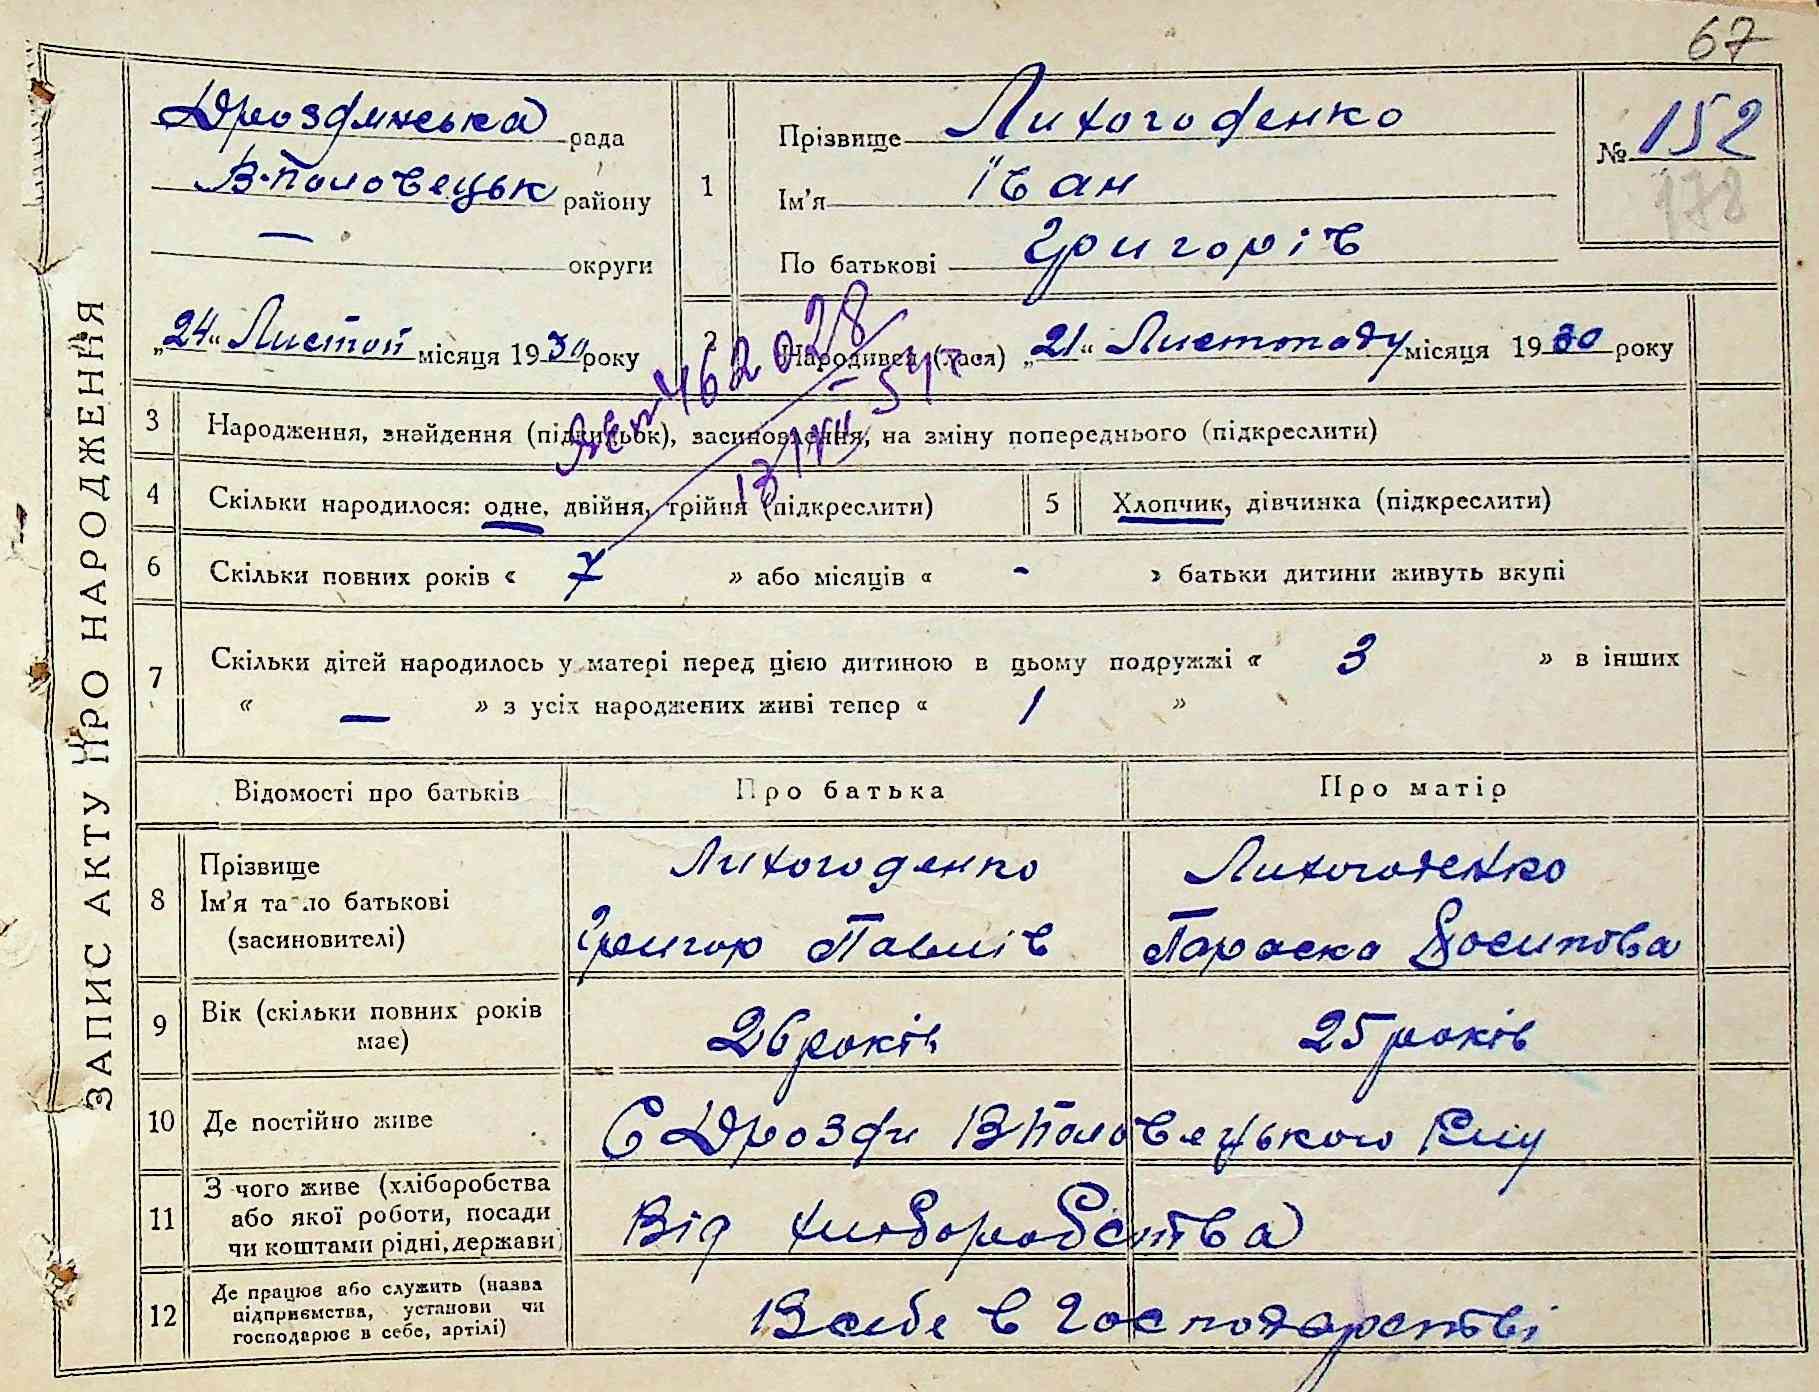 67
ЗАПИС АКТУ ПРО НАРОДЖЕННЯ
Дроздинська рада
В-Половецьк району
— округи
„24“ Листоп місяця 1930 року
1
Прізвище Лихогоденко
Ім'я Іван
По батькові Григорів
№ 152
178
2 Народився (лася) „21“ Листопаду місяця 1930 року
462028
3 Народження, знайдення (підкидьок), засиновлення, на зміну попереднього (підкреслити)
4 Скільки народилося: одне, двійня, трійня (підкреслити)
5 Хлопчик, дівчинка (підкреслити)
6 Скільки повних років « 7 » або місяців « - » батьки дитини живуть вкупі
7 Скільки дітей народилось у матері перед цією дитиною в цьому подружжі « 3 » в інших
« — » з усіх народжених живі тепер « 1 »
Відомості про батьків Про батька Про матір
8 Прізвище
Ім'я та по батькові
(засиновителі)
Лихогоденко
Григор Павлів
Лихогоденко
Параска Йосипова
9 Вік (скільки повних років
має)
26 років 25 років
10 Де постійно живе С Дрозди В Половецького Р-ну
11 З чого живе (хліборобства
або якої роботи, посади
чи коштами рідні, держави)
Від хліборобства
12 Де працює або служить (назва
підприємства, установи чи
господарює в себе, артілі)
В себе в господарстві